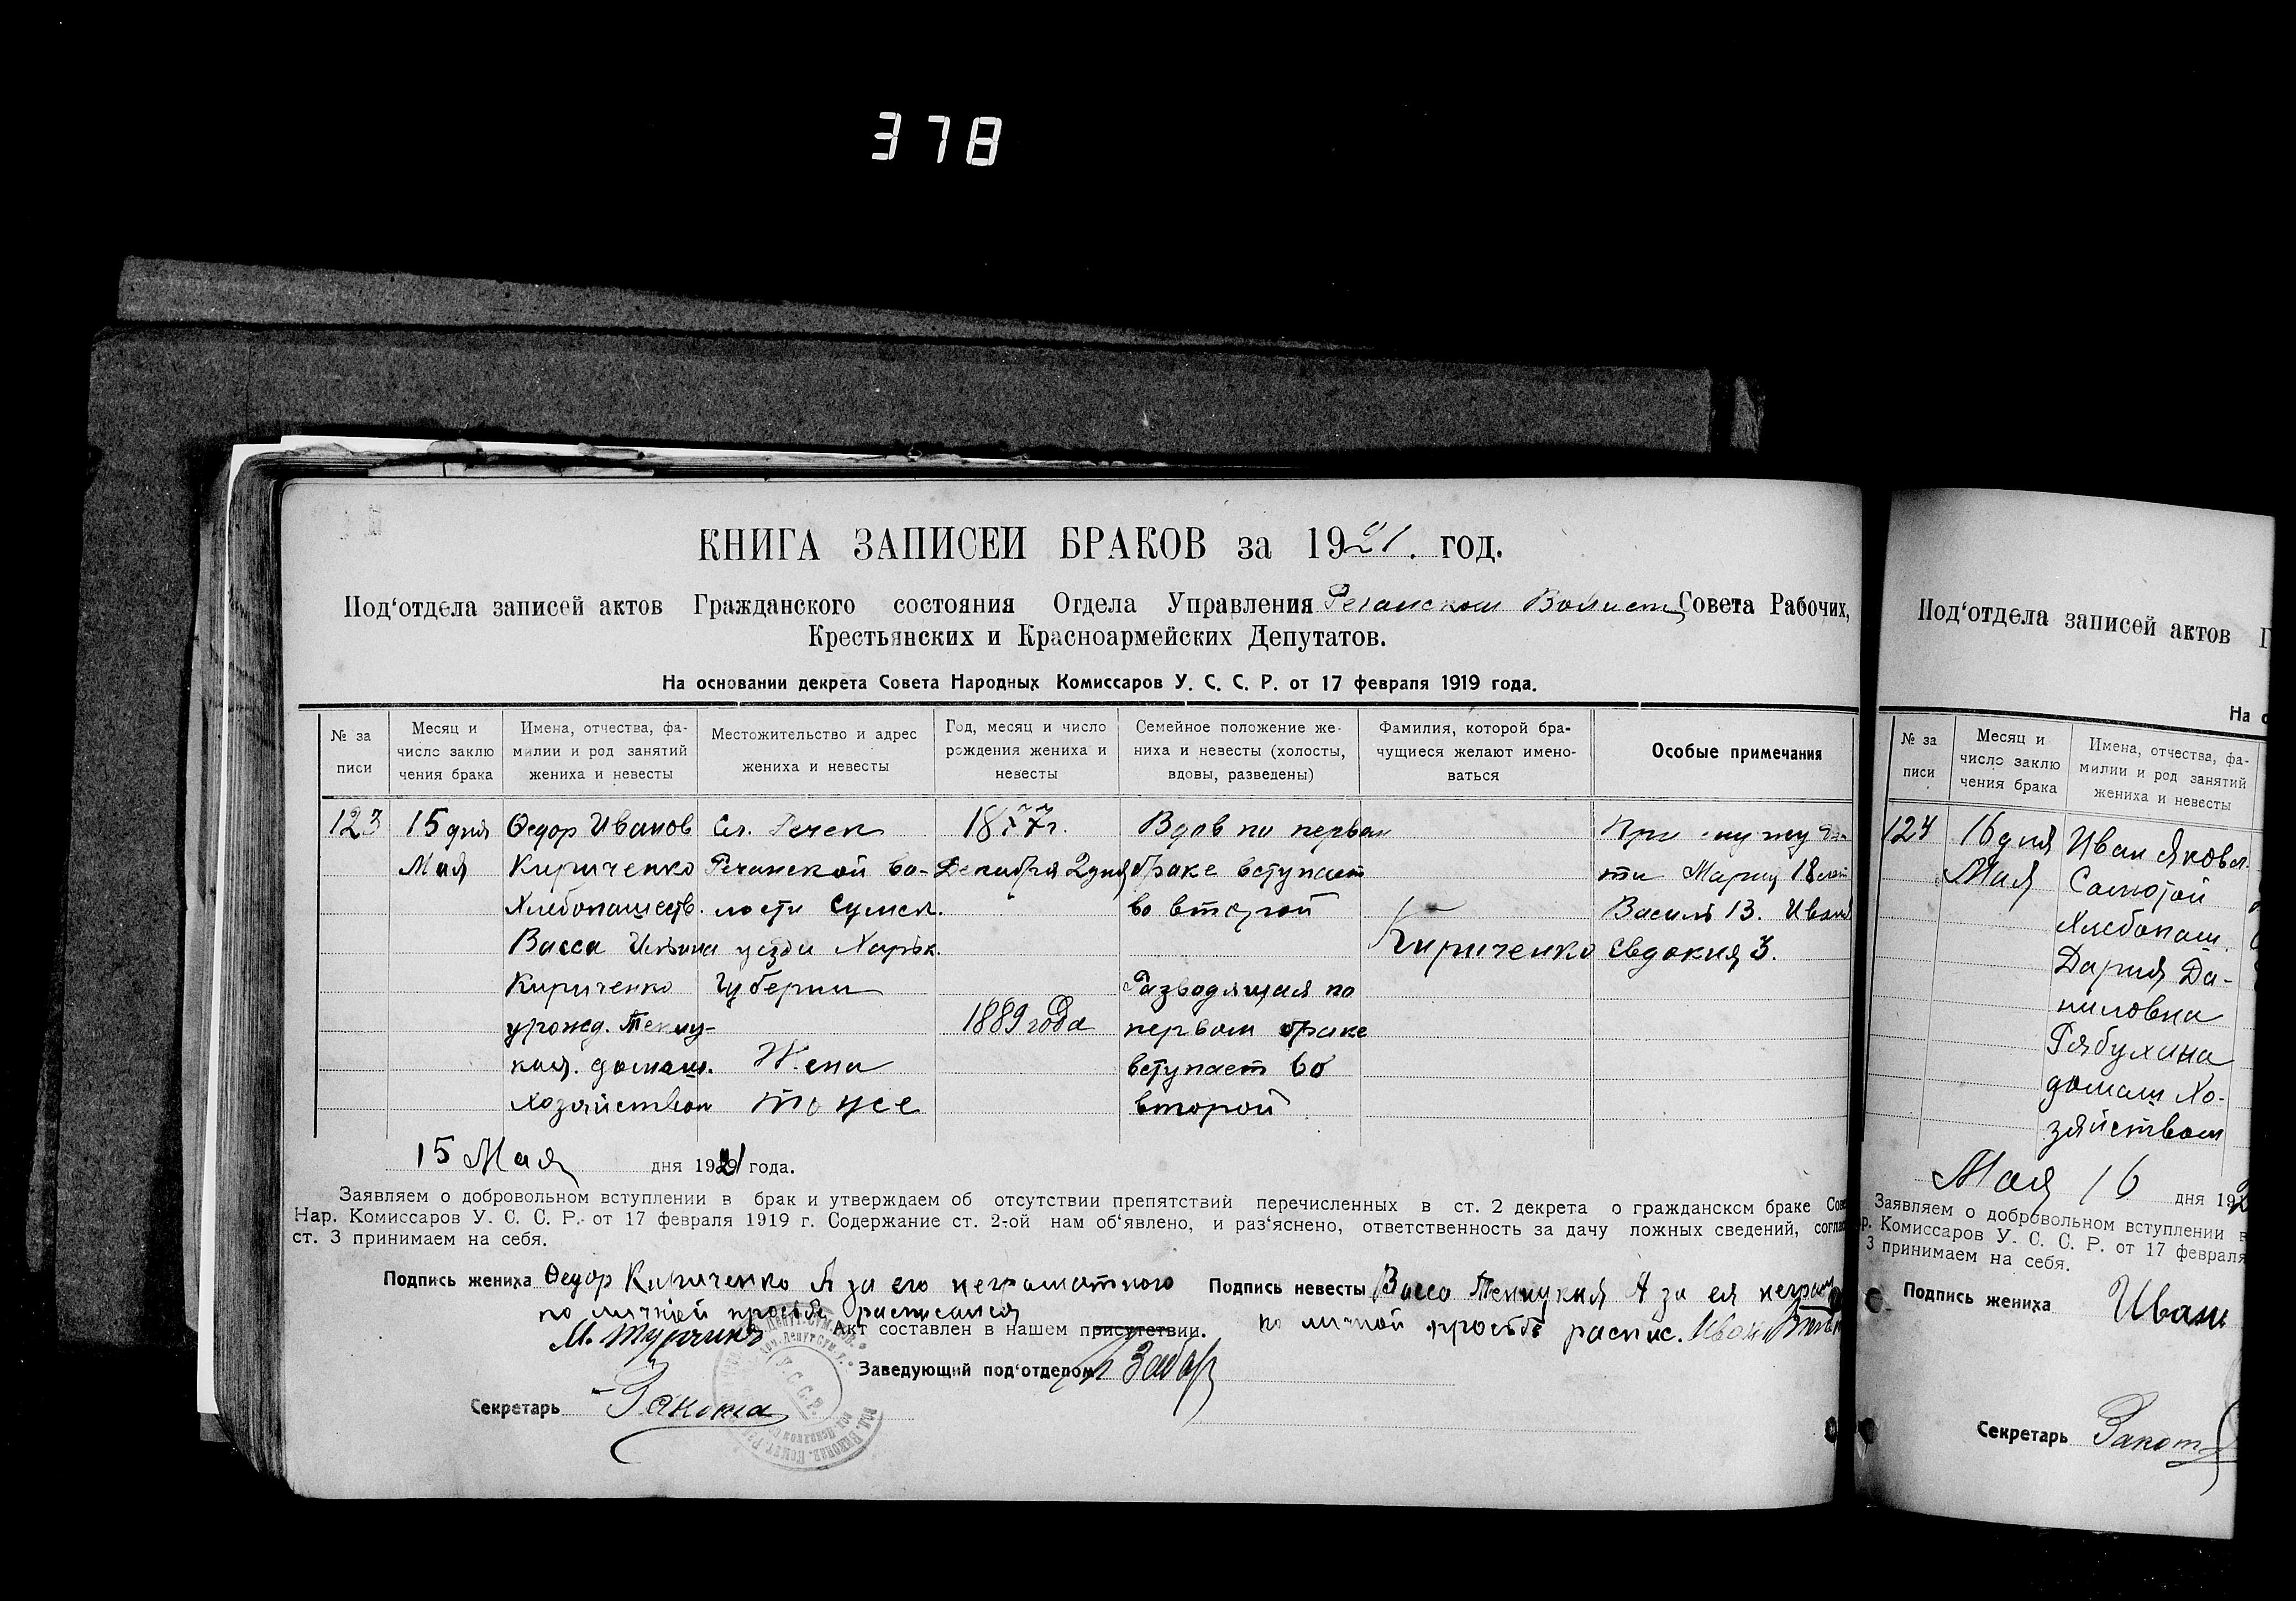 378
КНИГА ЗАПИСЕЙ БРАКОВ за 1921. год.
Под‘отдела записей актов Гражданского состояния Отдела Управления Речанском Волист Совета Рабочих,
Крестьянских и Красноармейских Депутатов.
На основании декрета Совета Народных Комиссаров У. С. С. Р. от 17 февраля 1919 года.
№ за писи
Месяц и число заклю чения брака
Имена, отчества, фа- милии и род занятий жениха и невесты
Местожительство и адрес жениха и невесты
Год, месяц и число рождения жениха и невесты
Семейное положение же- ниха и невесты (холосты, вдовы, разведены)
Фамилия, которой бра- чущиеся желают имено- ваться
Особые примечания
123
15 дня
Мая
Ѳедор Иванов
Кириченко
Хлебопашеств.
Васса Ильина
Кириченко
урожд.
домаш.
хозяйством
Сл. Речек
Речанской во-
лости Сумск.
уезди Харьк.
Губернии
Жена
тоже
1877г.
Декабря 2 дня
1889 года
Вдов по первом
браке вступает
во второй
Разводящая по
первом браке
вступает во
второй
Кириченко
При
ти Мария 18 лет
Василь 13. Иван
Евдокия 3.
15 Мая дня 1921 года.
Заявляем о добровольном вступлении в брак и утверждаем об отсутствии препятствий перечисленных в ст. 2 декрета о гражданском браке Сове
Нар. Комиссаров У. С. С. Р. от 17 февраля 1919 г. Содержание ст. 2-ой нам об‘явлено, и раз‘яснено, ответственность за дачу ложных сведений, соглас
ст. 3 принимаем на себя.
Подпись жениха Ѳедор Кириченко А за его неграмотного
по личной просьбе расписался
Подпись невесты Васса А за ея неграм
по личной просьбе распис. Иван
Акт составлен в нашем присутствии.
Заведующий под‘отделом
Секретарь
У.С.С.Р.
Под‘отдела записей актов Г
На о
№ за писи
Месяц и число заклю чения брака
Имена, отчества, фа- милии и род занятий жениха и невесты
124
16 дня
Мая
Иван Яковл.
Самотой
Хлебопаш.
Дария Да-
ниловна
Рябухина
домаш хо-
зяйством
Мая 16 дня 192
Заявляем о добровольном вступлении в
р. Комиссаров У. С. С. Р. от 17 февраля
3 принимаем на себя.
Подпись жениха Иван
Секретарь